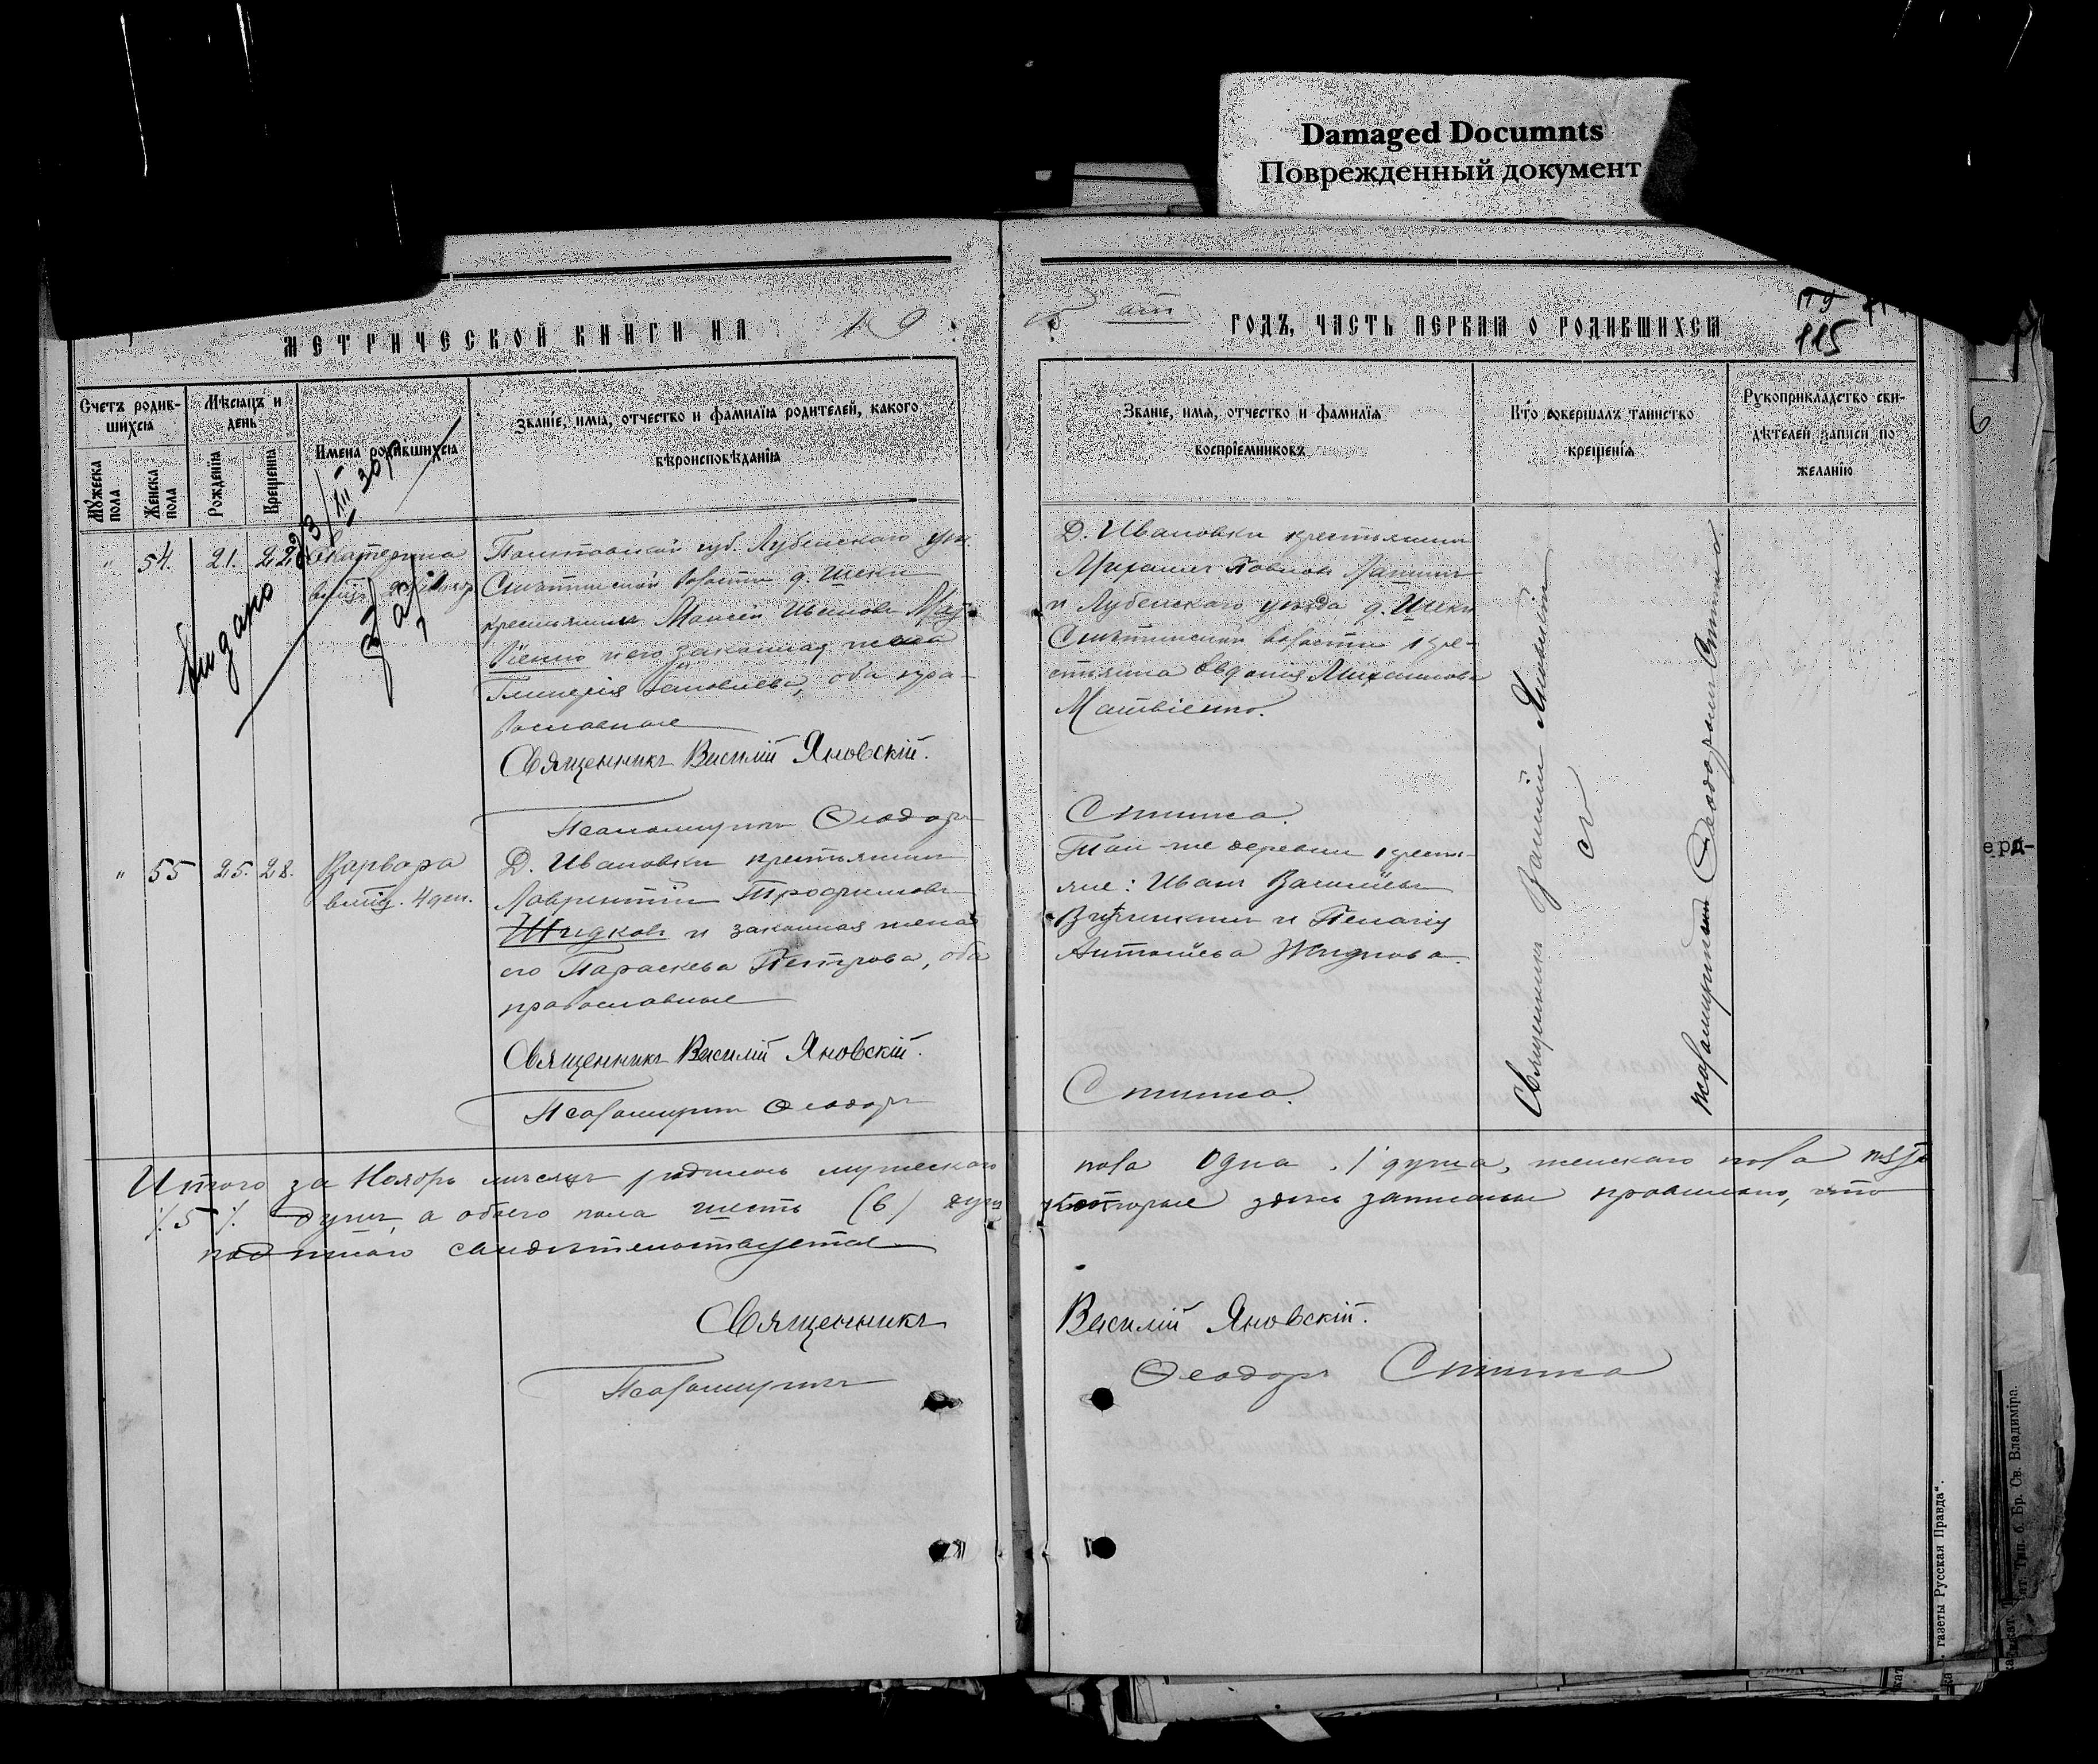 Damaged Documnts
Поврежденный документ
МЕТРИЧЕСКОЙ КНИГИ НА 19
ГОДЪ, ЧАСТЬ ПЕРВАЯ О РОДИВШИХСЯ
115
Счетъ родив-
шихся
Мужеска пола
Женска пола
Мѣсяцъ и
день
Рожденія
Крещенія
Имена родившихся
Званіе, имя, отчество и фамилія родителей, какого
вѣроисповѣданія
Званіе, имя, отчество и фамилія
воспріемниковъ
Кто совершалъ таинство
крещенія
Рукоприкладство сви-
дѣтелей записи по
желанію
" 54. 21. 22. Екатерина
Выдано
Полтавской губ. Лубенскаго
волости д. Шеки
крестьянинъ Моисей Ивановъ Мат-
віенко и его законная жена
Гликерія, оба пра-
вославные
Священникъ Василій Яновскій.
Псаломщикъ Ѳеодоръ
Д. Ивановки крестьянинъ
Михаилъ Павловъ
и Лубенскаго уѣзда д. Шеки
волости кре-
стьянка Евдокія Михаилова
Матвіенко.
Спитка.
Священникъ Василій Яновскій
съ
псаломщикомъ Ѳеодоромъ Спитка
" 55 25. 28. Варвара
4 дек.
Д. Ивановки крестьянинъ
Лаврентій Трофимовъ
Жидковъ и законная жена
его Параскева Петрова, оба
православные
Священникъ Василій Яновскій.
Псаломщикъ Ѳеодоръ
Той-же деревни крестья-
не: Иванъ Васильевъ
и Пелагія
Антоньева Жидкова.
Спитка.
Итого за Ноябрь мѣсяцъ родилось мужескаго пола одна 1 душа, женскаго пола пять
/5/. душъ, а обоего пола шесть (6) душъ которые здѣсь записаны правильно, что
подписью свидѣтельствуется
Священникъ Василій Яновскій.
Псаломщикъ Ѳеодоръ Спитка
газеты Русская Правда".
Тип. б. Бр. Св. Владиміра.